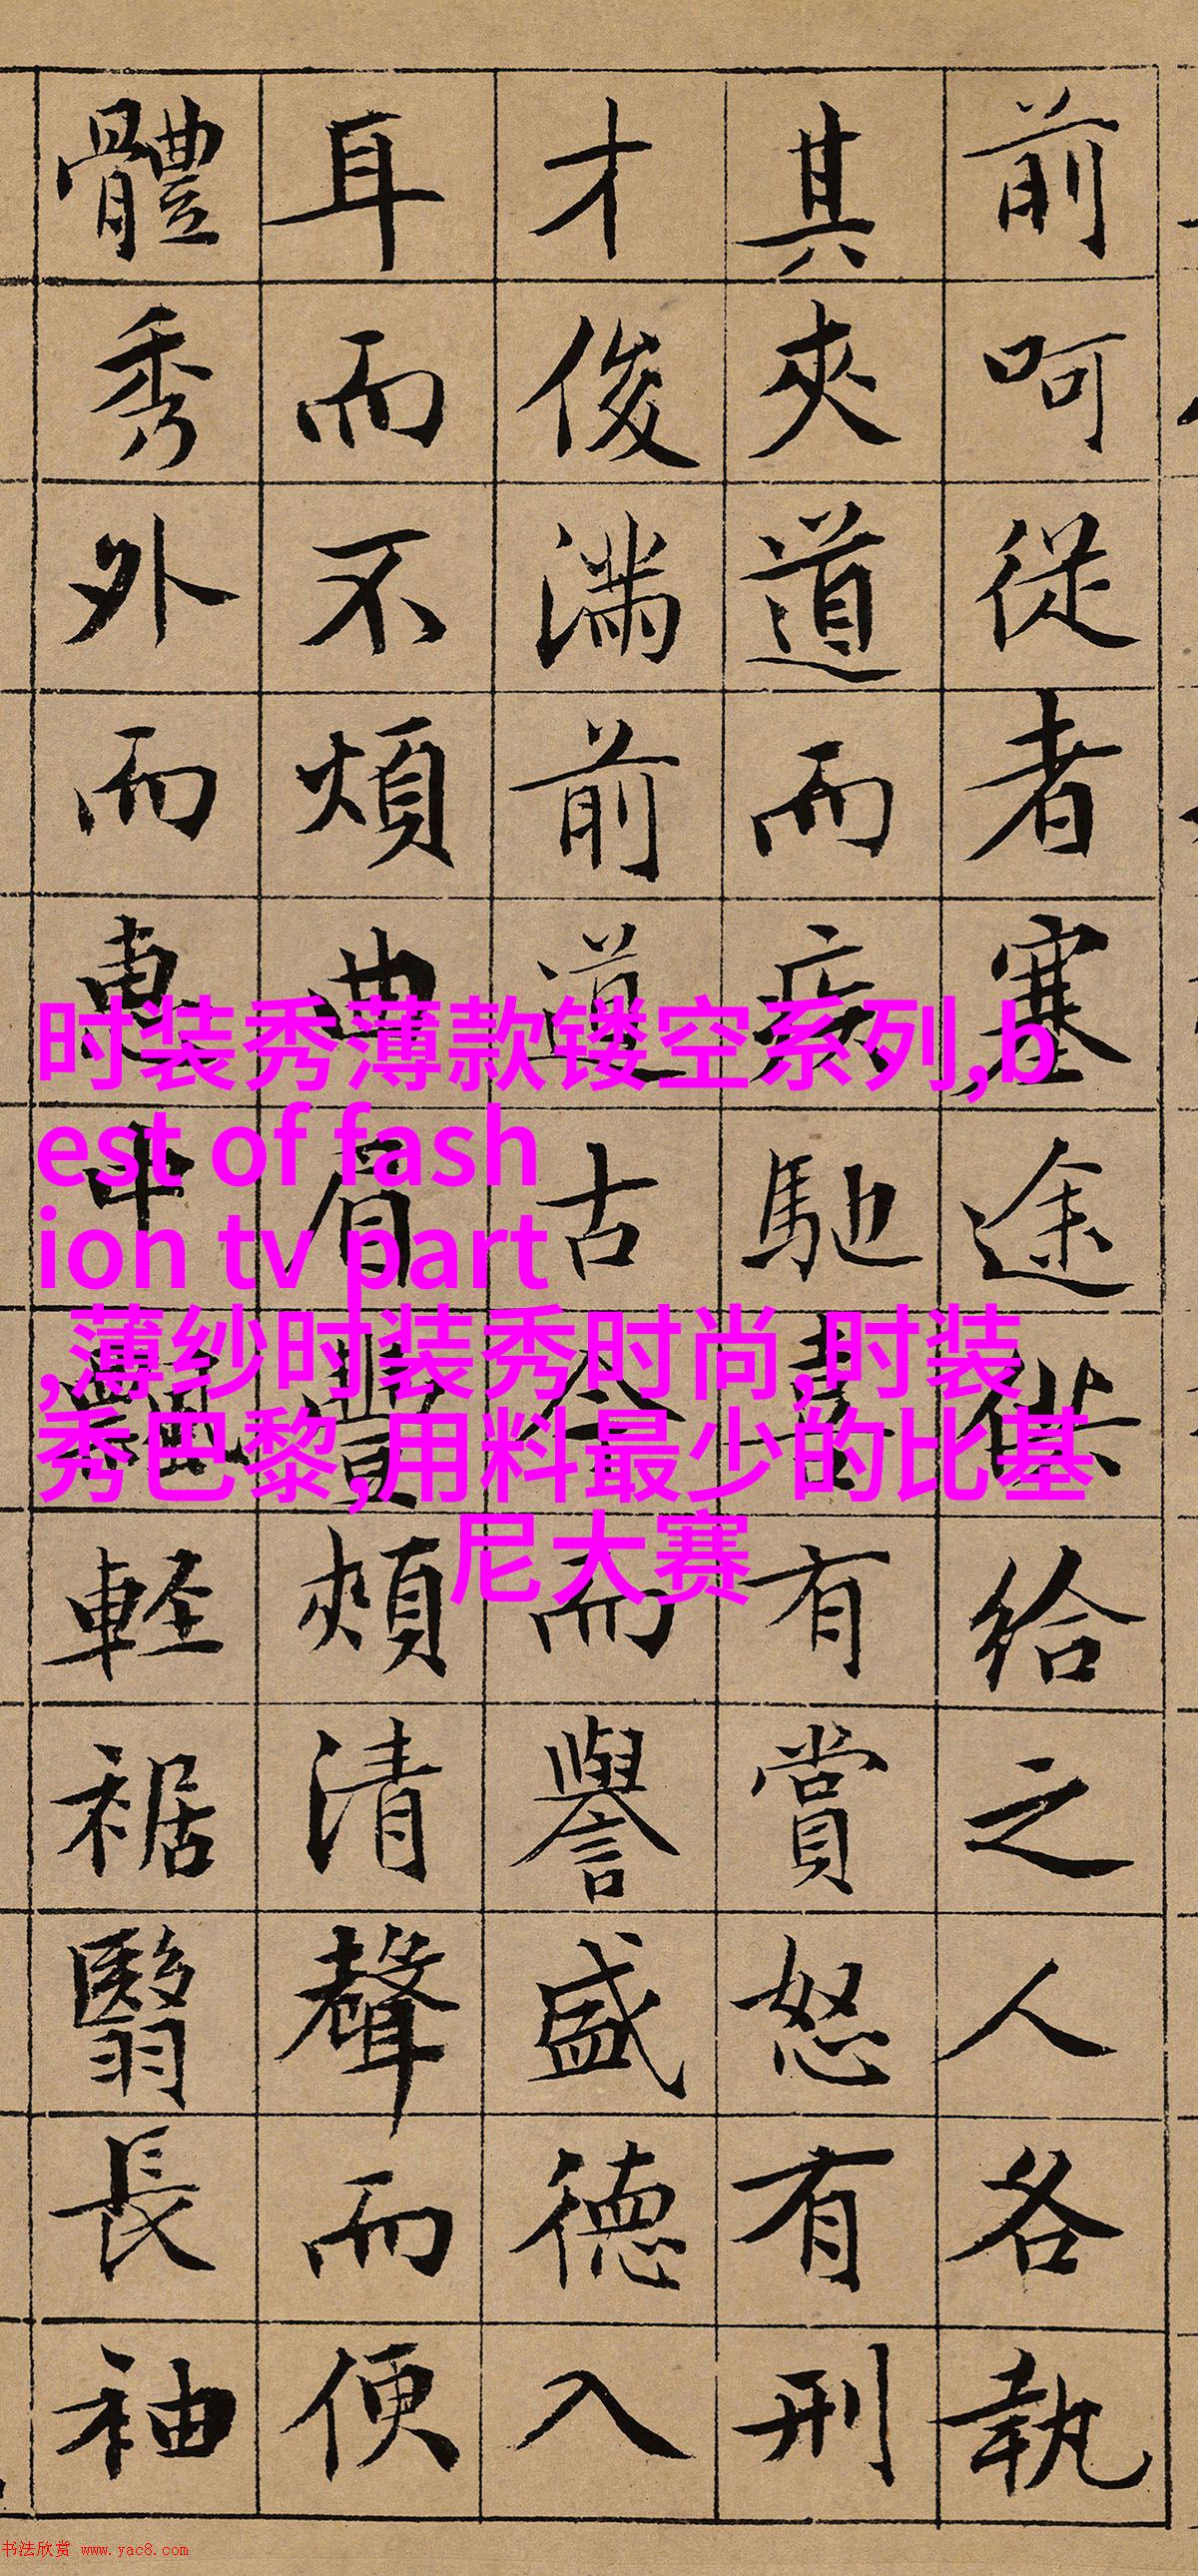 前呵從者塞途供給之人各執
其夾道而疾馳喜有賞怒有刑
才俊滿前道古今而譽盛德入
耳而不煩曲眉豊頰清聲而便
體秀外而惠中飄軽裾翳長袖
时装秀薄款镂空系列,b
est of fash
ion tv part
,薄纱时装秀时尚,时装
秀巴黎,用料最少的比基
尼大赛
书法欣赏 www.yac8.com